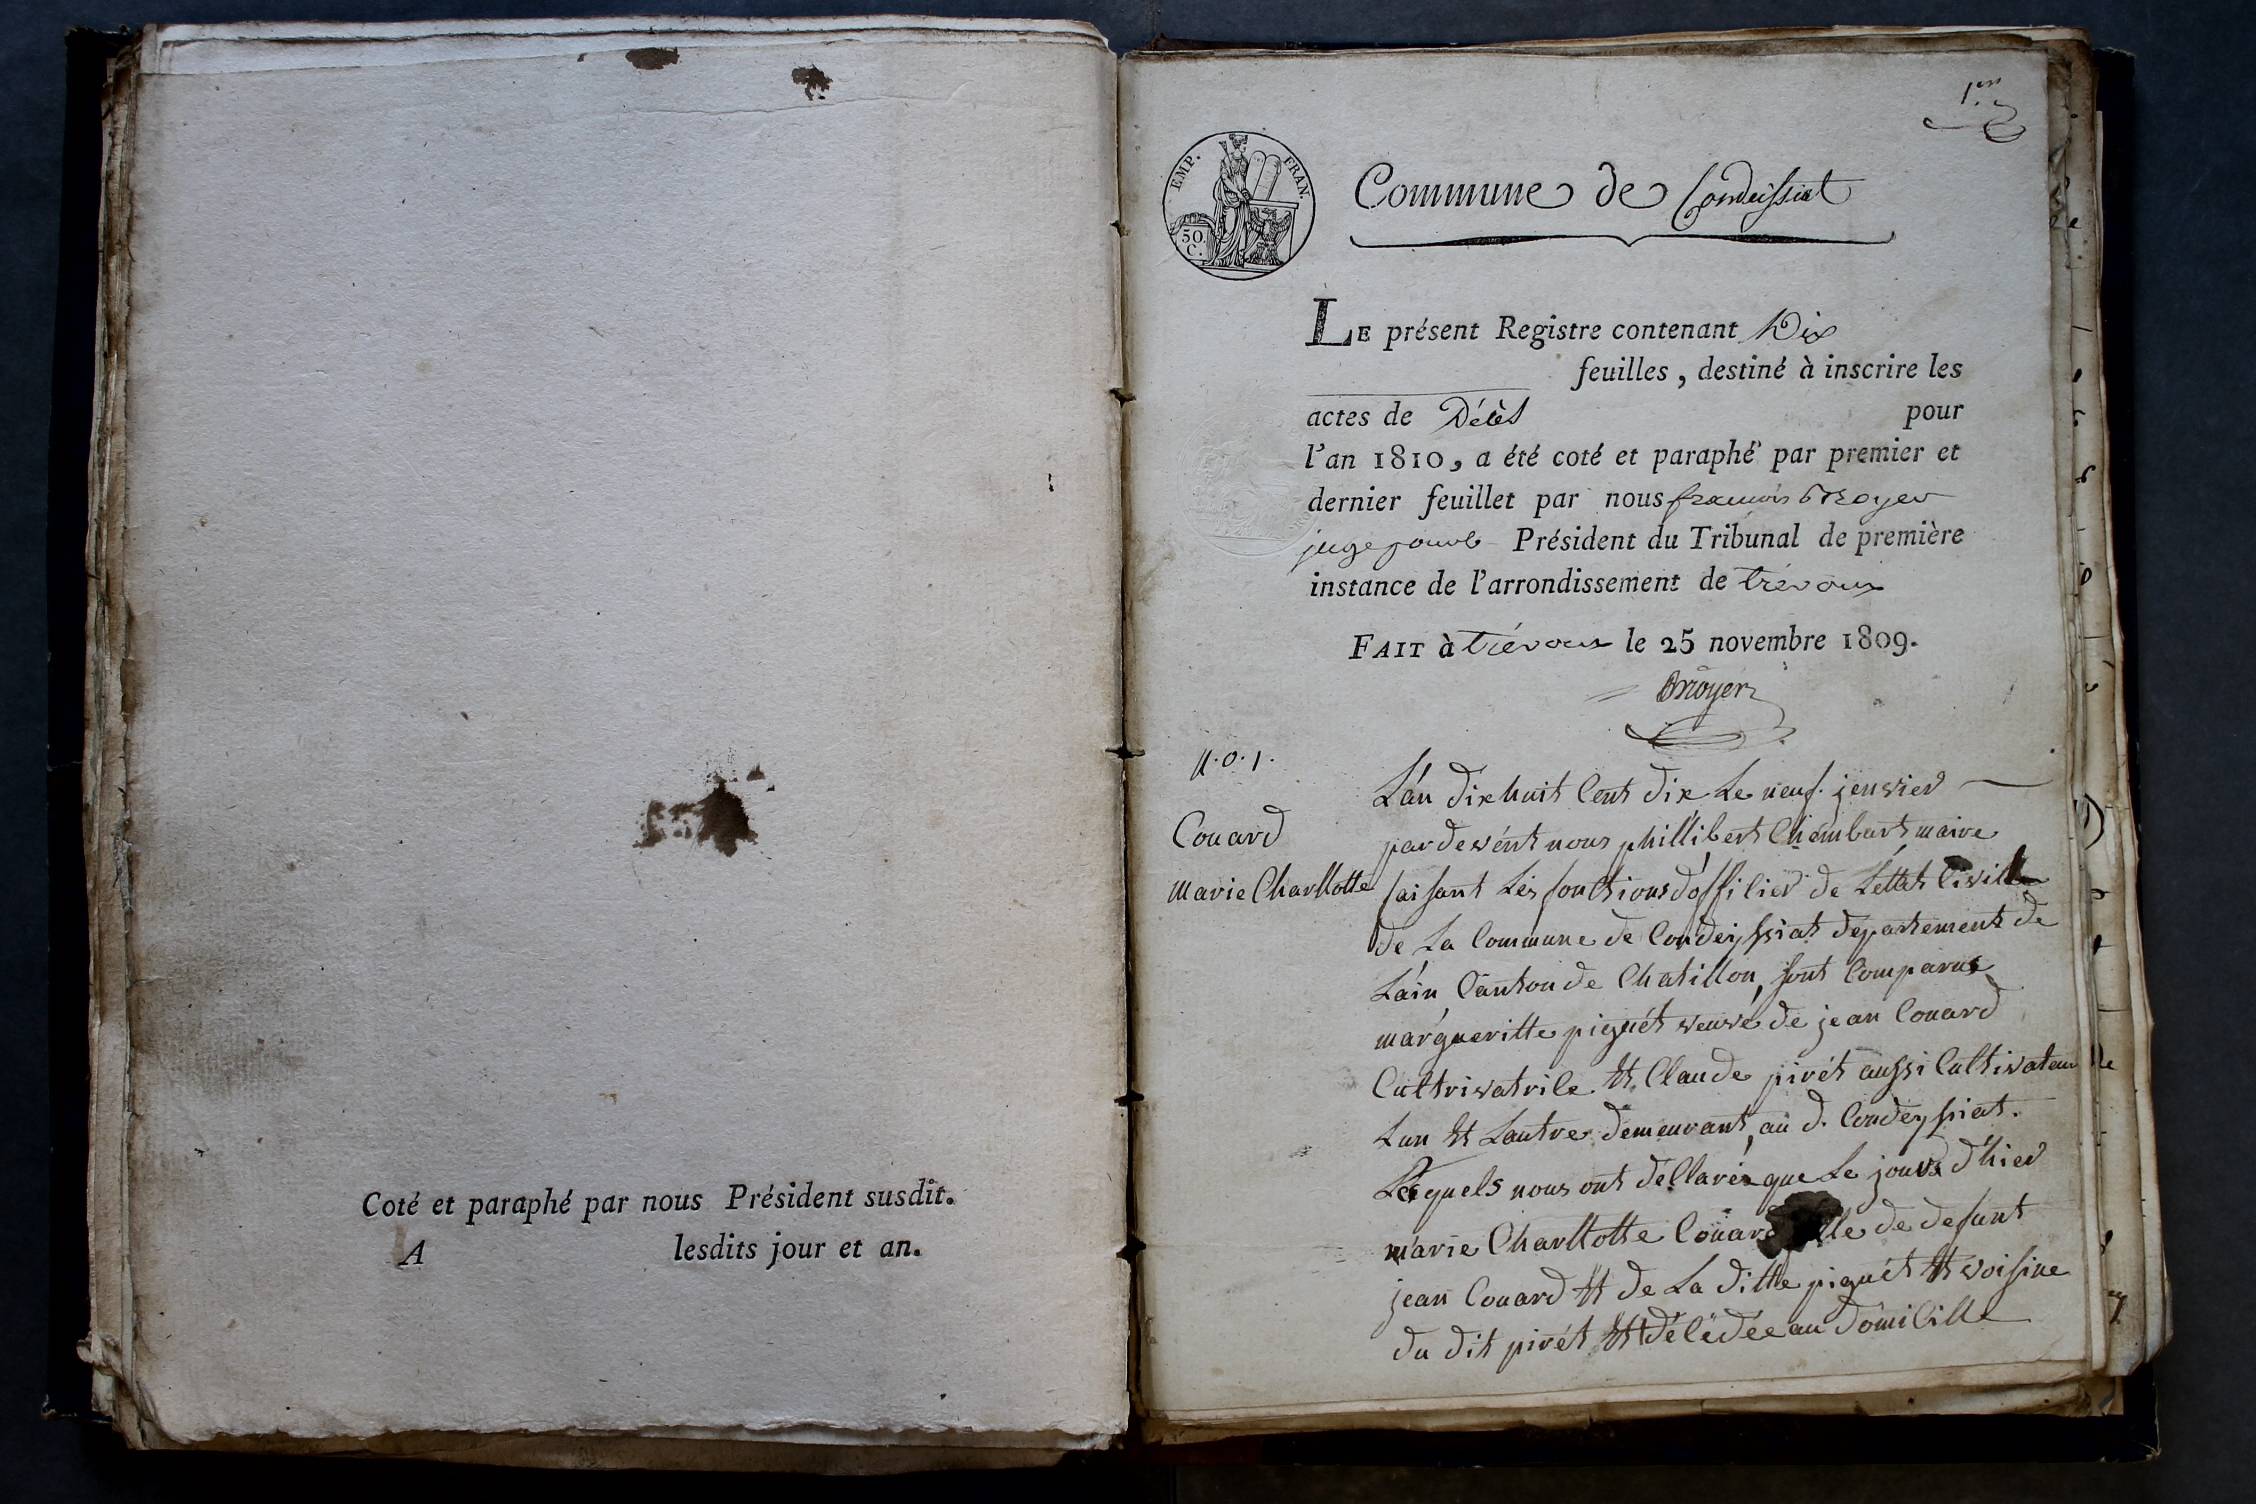 Coté et paraphé par nous Président susdit.
A lesdits jour et an.
1.er
EMP. FRAN.
50.
C.
Commune de Condeissiat
LE présent Registre contenant Dix
feuilles, destiné à inscrire les
actes de Décès pour
l'an 1810, a été coté et paraphé par premier et
dernier feuillet par nous françois
juge pour le Président du Tribunal de première
instance de l'arrondissement de trévoux
FAIT à trévoux le 25 novembre 1809.
N.o.1.
Couard
Marie Charllotte
L'an dixhuit Cent dix Le neuf. jenvier
pardevént nous phillibert Chambart maire
faisant Les fonctions d'officier de Léttat Civille
de La Commune de Condeyssiat departement de
Lain, Canton de Chatillon, sont Comparus
margueritte piguét veuve de jean Couard
Cultrivatrice Et Claude pirét aussi Cultivateur
Lun Et Lautre demeurant, au d. Condeyssiat.
Lesquels nous ont déllarés que Le jours d'hier
marie Charllotte Couard fille de defunt
jean Couard Et de La ditte piguét Et voisine
du dit pirét Et décédée au domicille